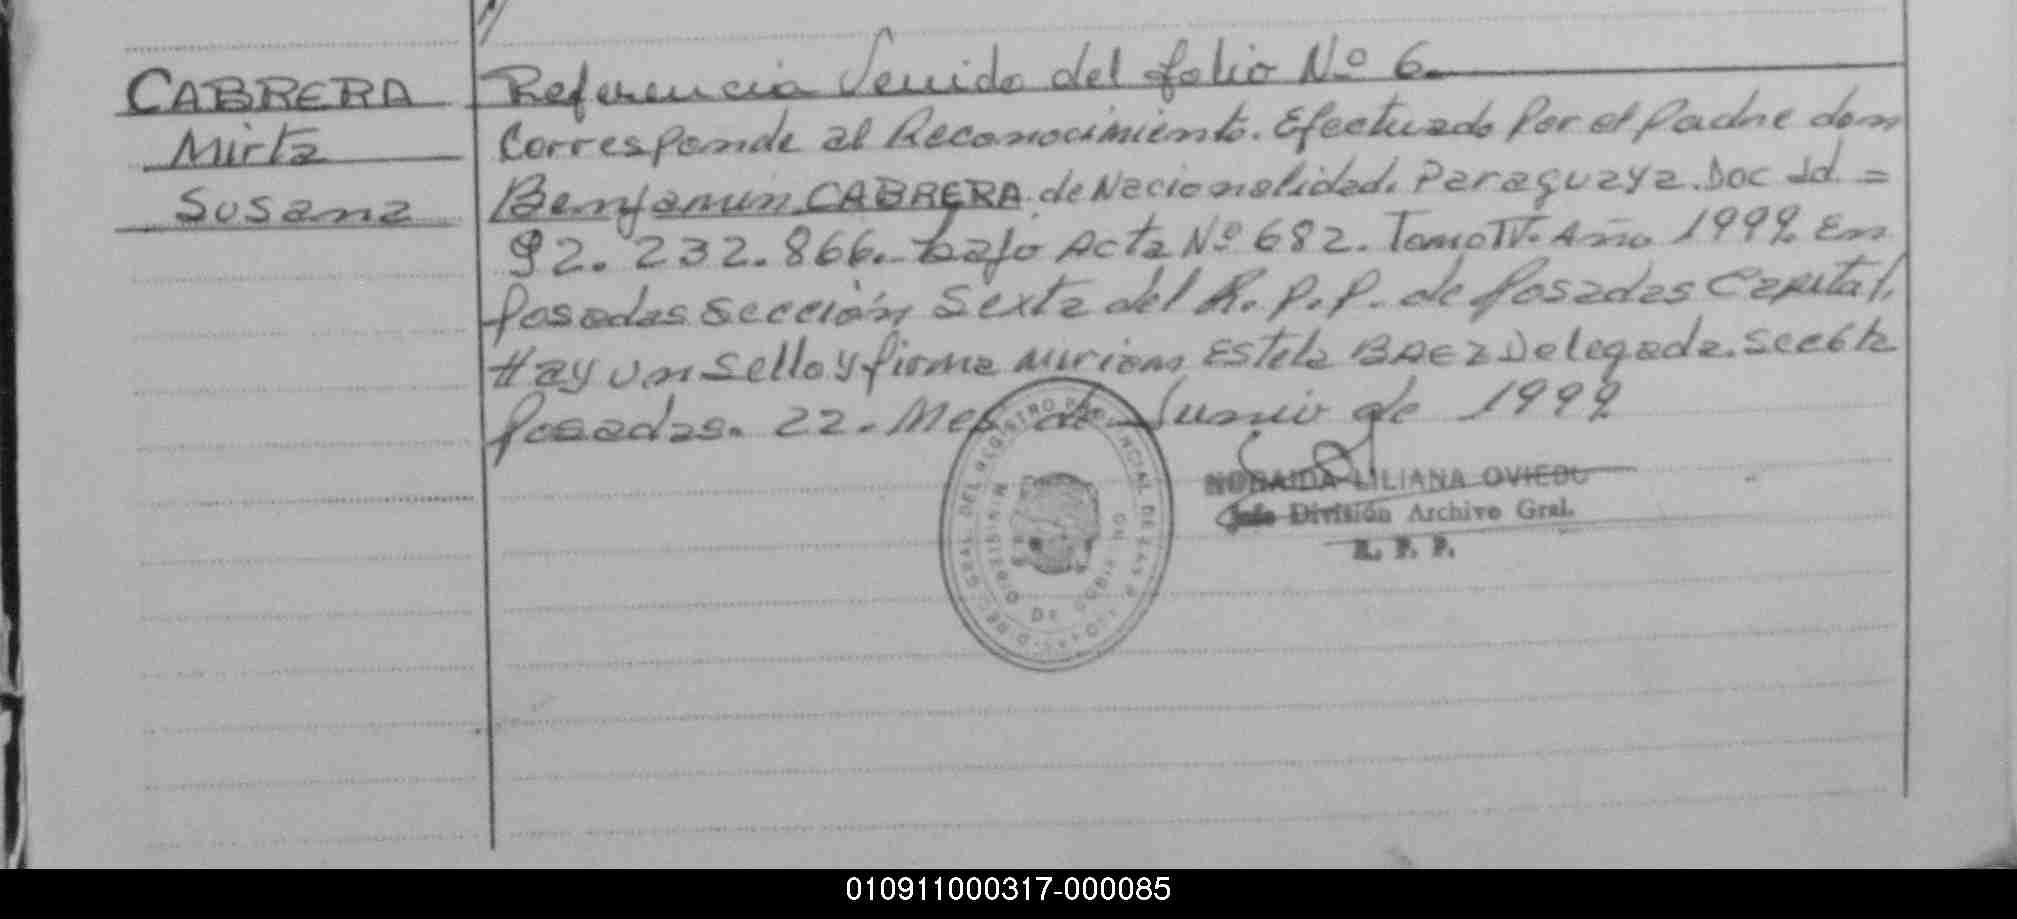 CABRERA
Mirta
Susana
Referencia Venido del folio Nº 6.
Corresponde al Reconocimiento. Efectuado Por el Padre don
Benjamin CABRERA de Nacionalidad. Paraguaya. Doc Id. =
92.232.866. bajo Acta Nº 682. Tomo IV. Año 1999. En
Posadas Sección Sexta del R.P.P. de Posadas Capital.
Hay un Sello y firma Miriam Estela BAEZ Delegada. Sec 6ta
Posadas. 22. Mes de Junio de 1999
NORAIDA LILIANA OVIEDO
Jefe División Archivo Gral.
R. P. P.
DEL REGISTRO PROVINCIAL DE LAS P
MINISTERIO DE GOBIERNO
010911000317-000085